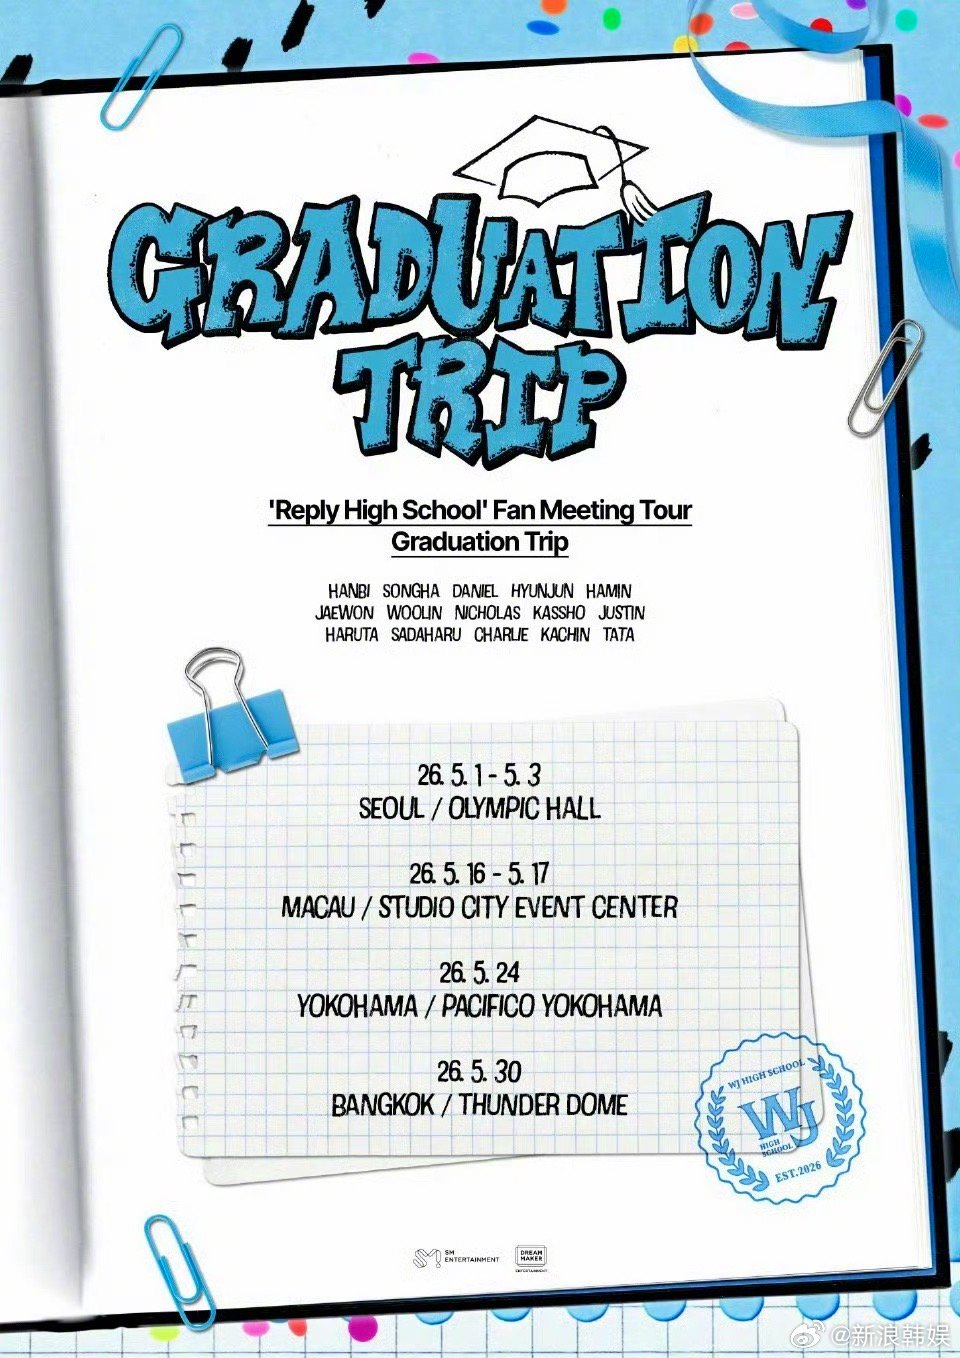 GRADUATION
TRIP
'Reply High School' Fan Meeting Tour
Graduation Trip
HANBI SONGHA DANIEL HYUNJUN HAMIN
JAEWON WOOLIN NICHOLAS KASSHO JUSTIN
HARUTA SADAHARU CHARLIE KACHIN TATA
26. 5. 1 - 5. 3
SEOUL / OLYMPIC HALL
26. 5. 16 - 5. 17
MACAU / STUDIO CITY EVENT CENTER
26. 5. 24
YOKOHAMA / PACIFICO YOKOHAMA
26. 5. 30
BANGKOK / THUNDER DOME
WJ HIGH SCHOOL
WJ
HIGH
SCHOOL
EST.2026
SM
ENTERTAINMENT
DREAM
MAKER
ENTERTAINMENT
@新浪韩娱